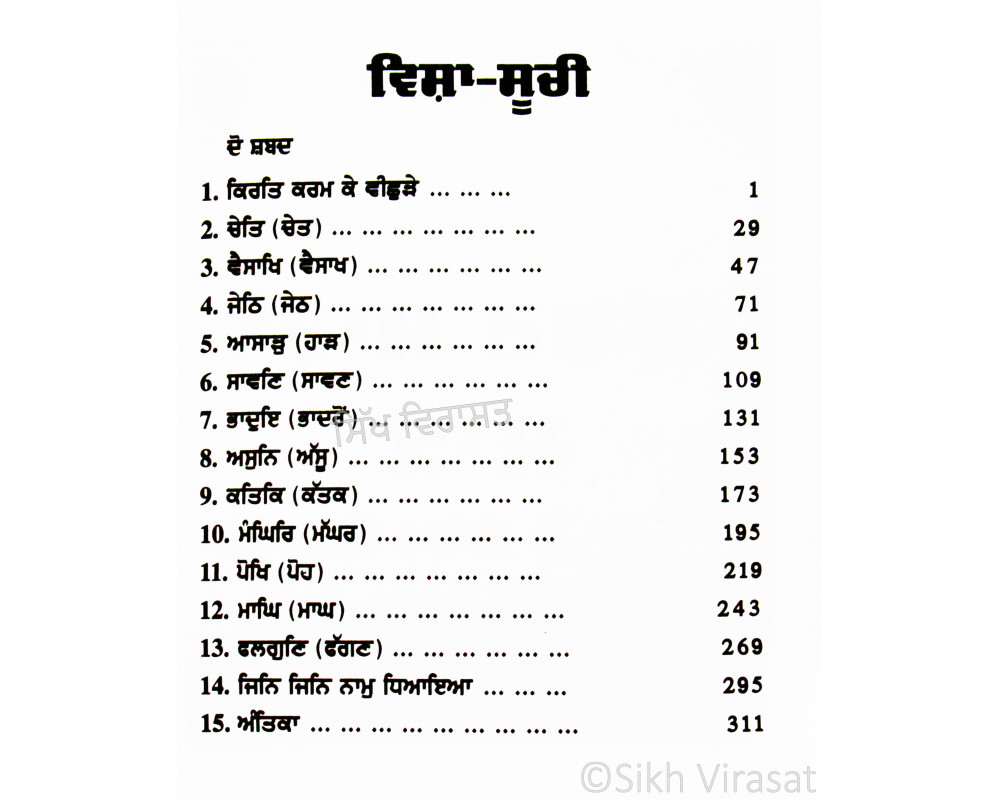 ਵਿਸ਼ਾ-ਸੂਚੀ
ਦੋ ਸ਼ਬਦ
1. ਕਿਰਤਿ ਕਰਮ ਕੇ ਵੀਛੁੜੇ ... ... ... 1
2. ਚੇਤਿ (ਚੇਤ) ... ... ... ... ... ... ... 29
3. ਵੈਸਾਖਿ (ਵੈਸਾਖ) ... ... ... ... ... ... 47
4. ਜੇਠਿ (ਜੇਠ) ... ... ... ... ... ... ... 71
5. ਆਸਾੜੁ (ਹਾੜ) ... ... ... ... ... ... 91
6. ਸਾਵਣਿ (ਸਾਵਣ) ... ... ... ... ... ... 109
7. ਭਾਦੁਇ (ਭਾਦਰੋਂ) ... ... ... ... ... ... 131
ਸਿੱਖ ਵਿਰਾਸਤ
8. ਅਸੁਨਿ (ਅੱਸੂ) ... ... ... ... ... ... ... 153
9. ਕਤਿਕਿ (ਕੱਤਕ) ... ... ... ... ... ... 173
10. ਮੰਘਿਰਿ (ਮੱਘਰ) ... ... ... ... ... ... 195
11. ਪੋਖਿ (ਪੋਹ) ... ... ... ... ... ... ... 219
12. ਮਾਘਿ (ਮਾਘ) ... ... ... ... ... ... ... 243
13. ਫਲਗੁਣਿ (ਫੱਗਣ) ... ... ... ... ... ... 269
14. ਜਿਨਿ ਜਿਨਿ ਨਾਮੁ ਧਿਆਇਆ ... ... ... 295
15. ਅੰਤਿਕਾ ... ... ... ... ... ... ... ... ... 311
©Sikh Virasat